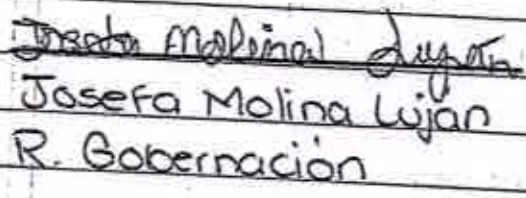 Josefa Molina Luján
Josefa Molina Luján
R. Gobernación